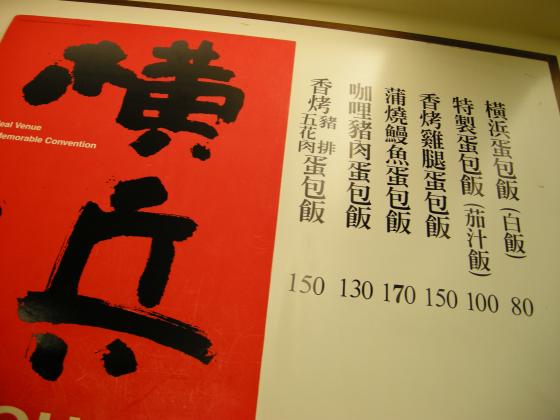 橫浜
eal Venue
Memorable Convention
橫浜蛋包飯(白飯) 80
特製蛋包飯(茄汁飯) 100
香烤雞腿蛋包飯 150
蒲燒鰻魚蛋包飯 170
咖哩豬肉蛋包飯 130
香烤豬排五花肉蛋包飯 150